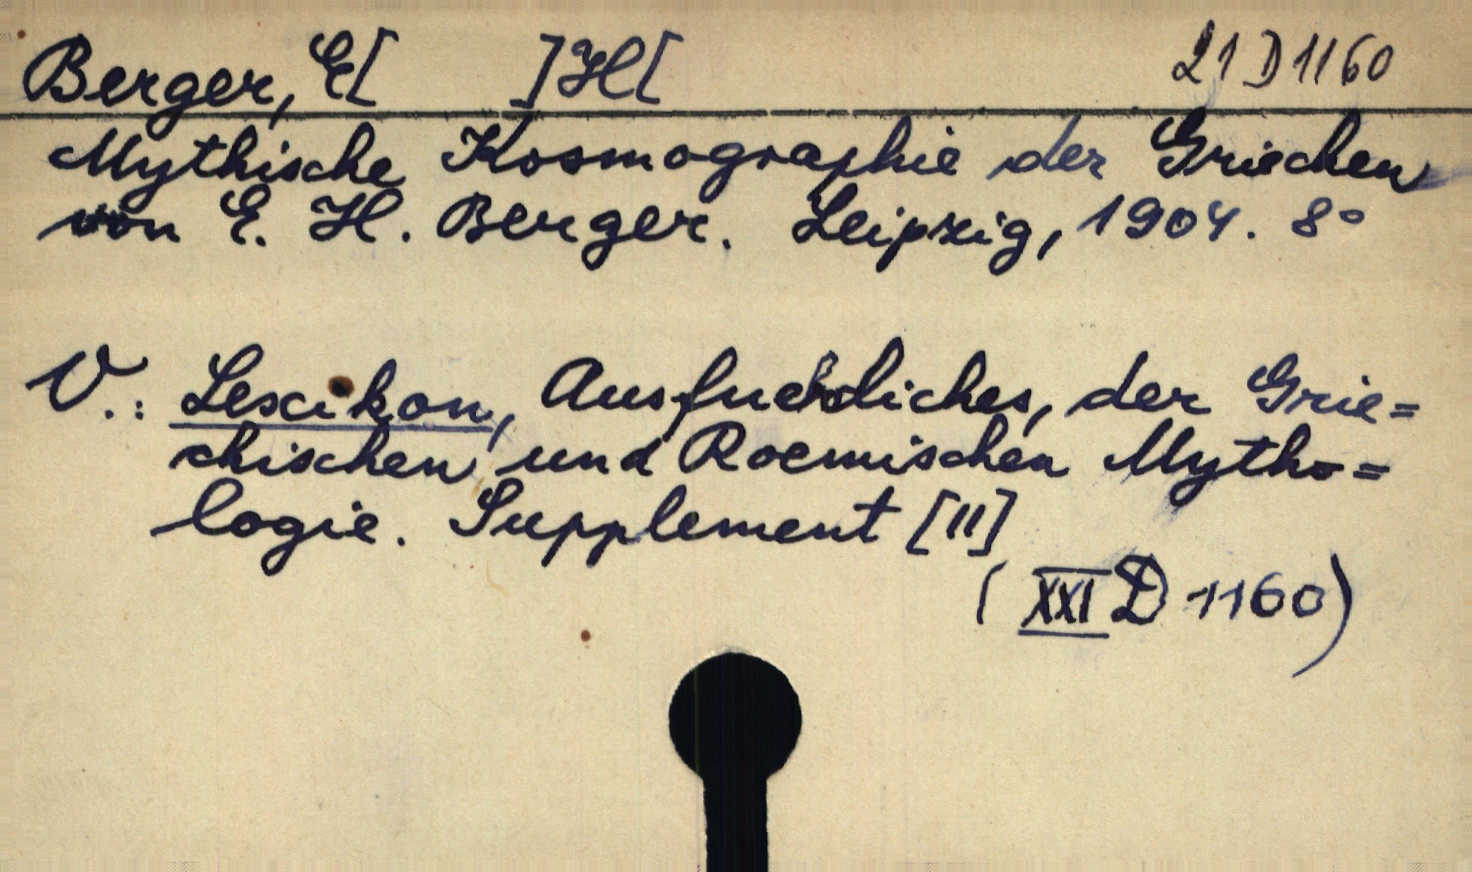 Berger, E[ ]H[ 21 D 1160
Mythische Kosmographie der Griechen
von E. H. Berger. Leipzig, 1904. 8°
V.: Lexikon, Ausfuehrliches, der Grie=
chischen und Roemischen Mytho=
logie. Supplement [II]
( XXI D 1160)